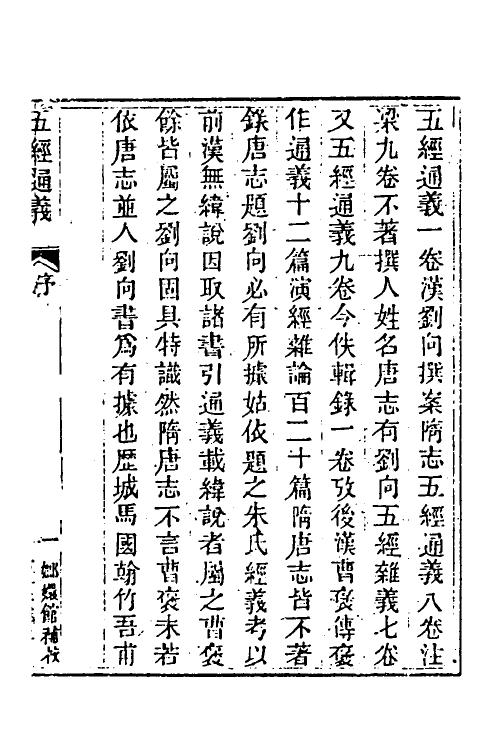 五經通義一卷漢劉向撰案隋志五經通義八卷注
梁九卷不著撰人姓名唐志有劉向五經雜義七卷
又五經通義九卷今佚輯錄一卷攷後漢曹褒傳褒
作通義十二篇演經雜論百二十篇隋唐志皆不著
錄唐志題劉向必有所據姑依題之朱氏經義考以
前漢無緯說因取諸書引通義載緯說者屬之曹褒
餘皆屬之劉向固具特識然隋唐志不言曹褒未若
依唐志並入劉向書爲有據也歷城馬國翰竹吾甫
五經通義
序
一
嫏嬛館補校